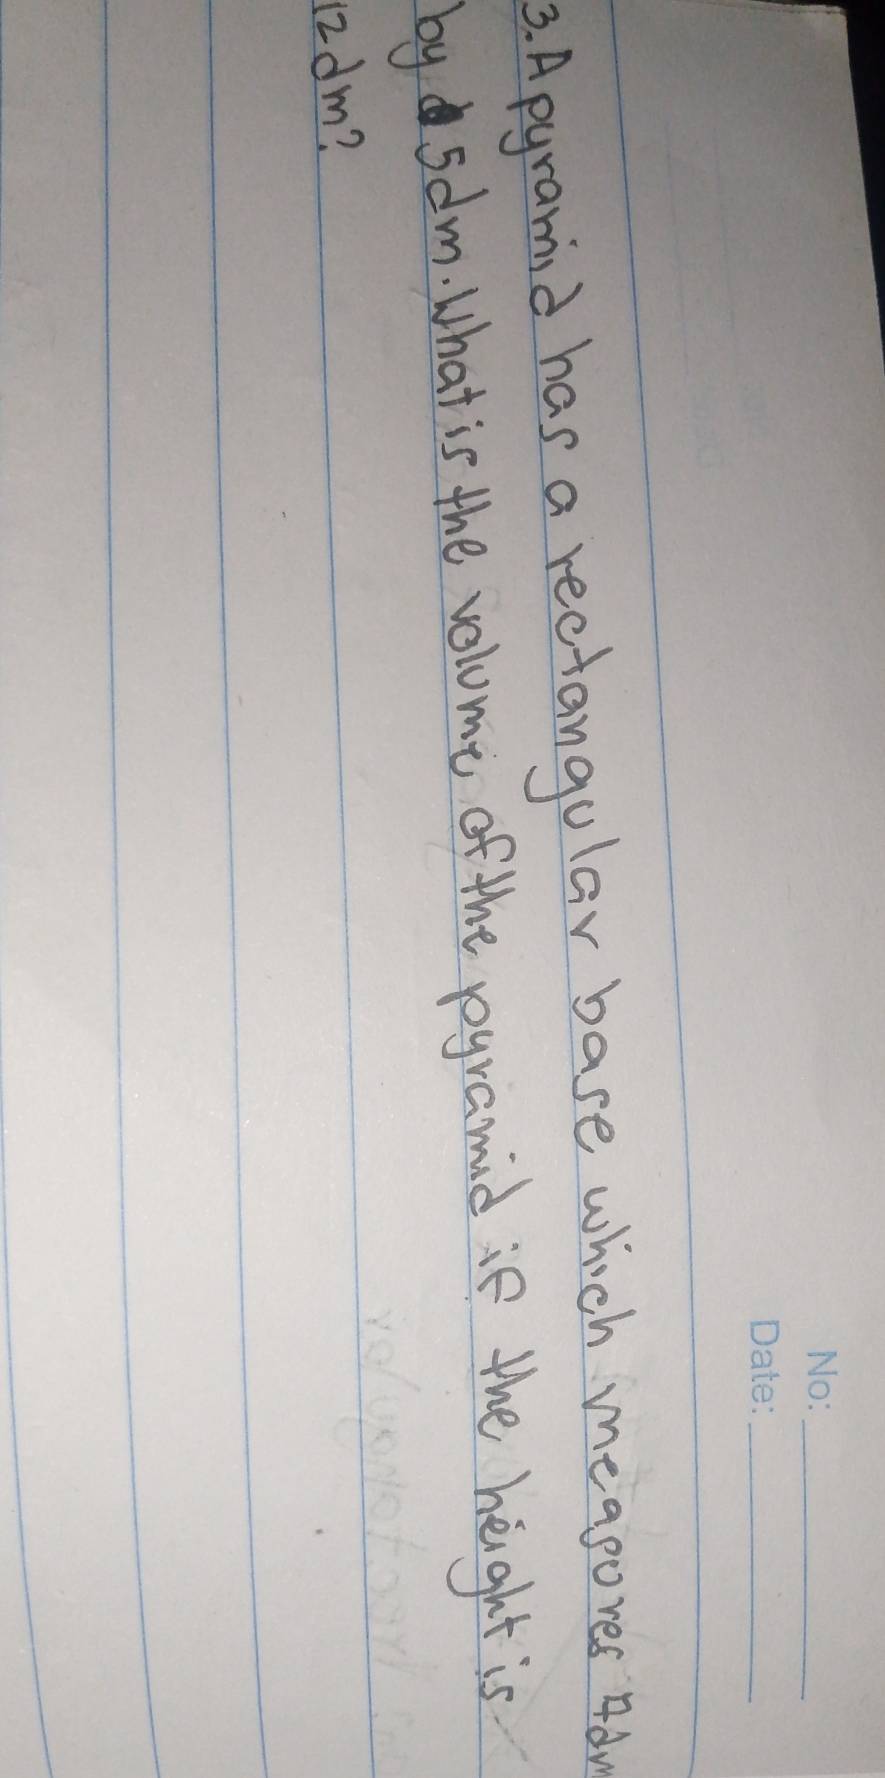 No:
Date:
3. A pyramid has a rectangular base which measures 4dm
by 5dm. What is the volume of the pyramid if the height is
12dm?